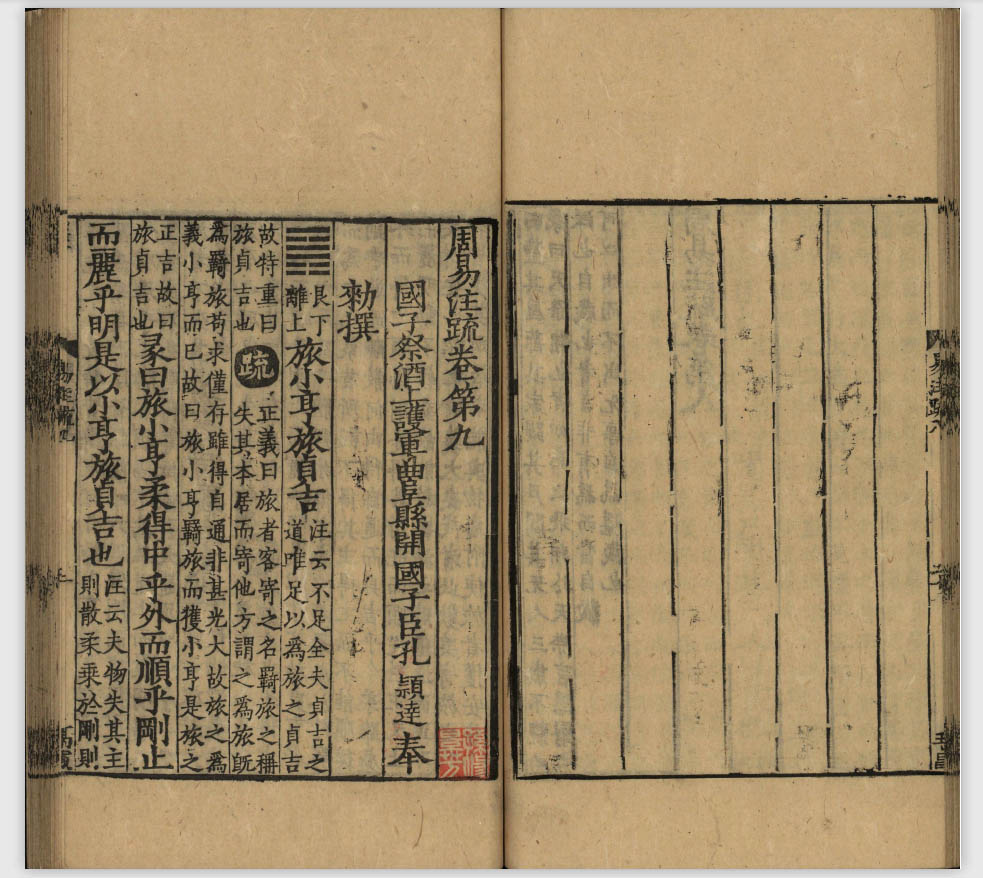 易注疏八
周易注疏卷第九
國子祭酒上護軍曲阜縣開國子臣孔穎達奉
勑撰
䷷艮下離上旅小亨旅貞吉注云不足全夫貞吉之道唯足以爲旅之貞吉
故特重曰旅貞吉也疏正義曰旅者客寄之名羇旅之稱失其本居而寄他方謂之爲旅旣
爲羇旅苟求僅存雖得自通非甚光大故旅之爲義小亨而已故曰旅小亨羇旅而獲小亨是旅之
正吉故曰旅貞吉也彖曰旅小亨柔得中乎外而順乎剛止
而麗乎明是以小亨旅貞吉也注云夫物失其主則散柔乘於剛則